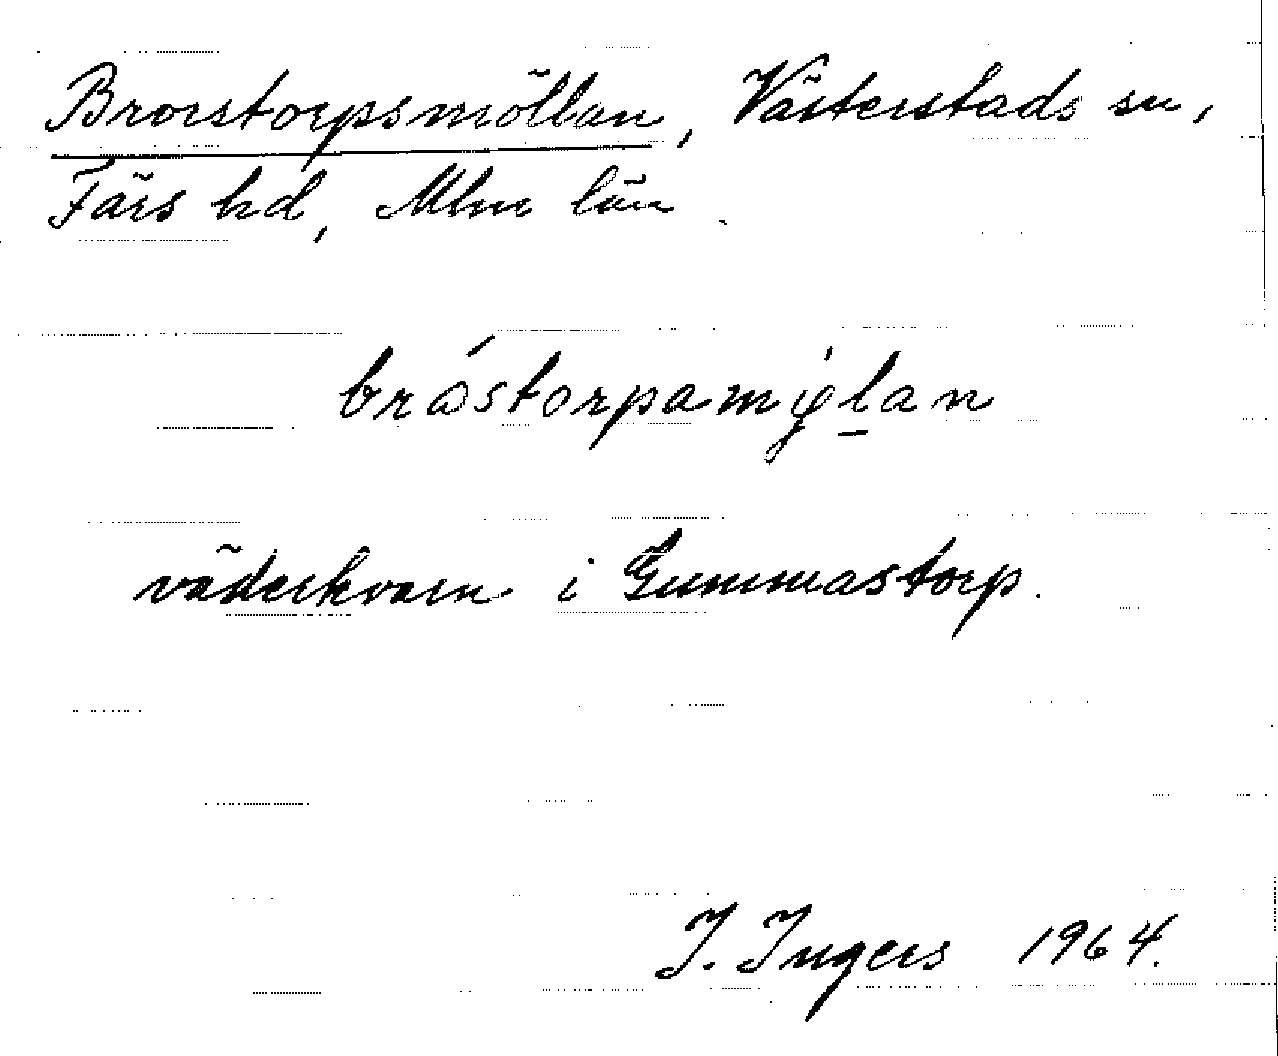 Brorstorpsmöllan, Västerstads sn,
Färs hd, Mlm län.
bråstorpamylan
väderkvarn i Gummastorp.
I. Ingers 1964.